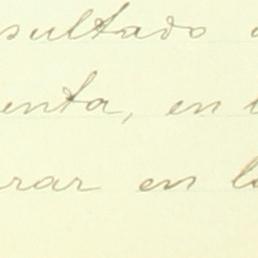 sultado
enta, en
rar en